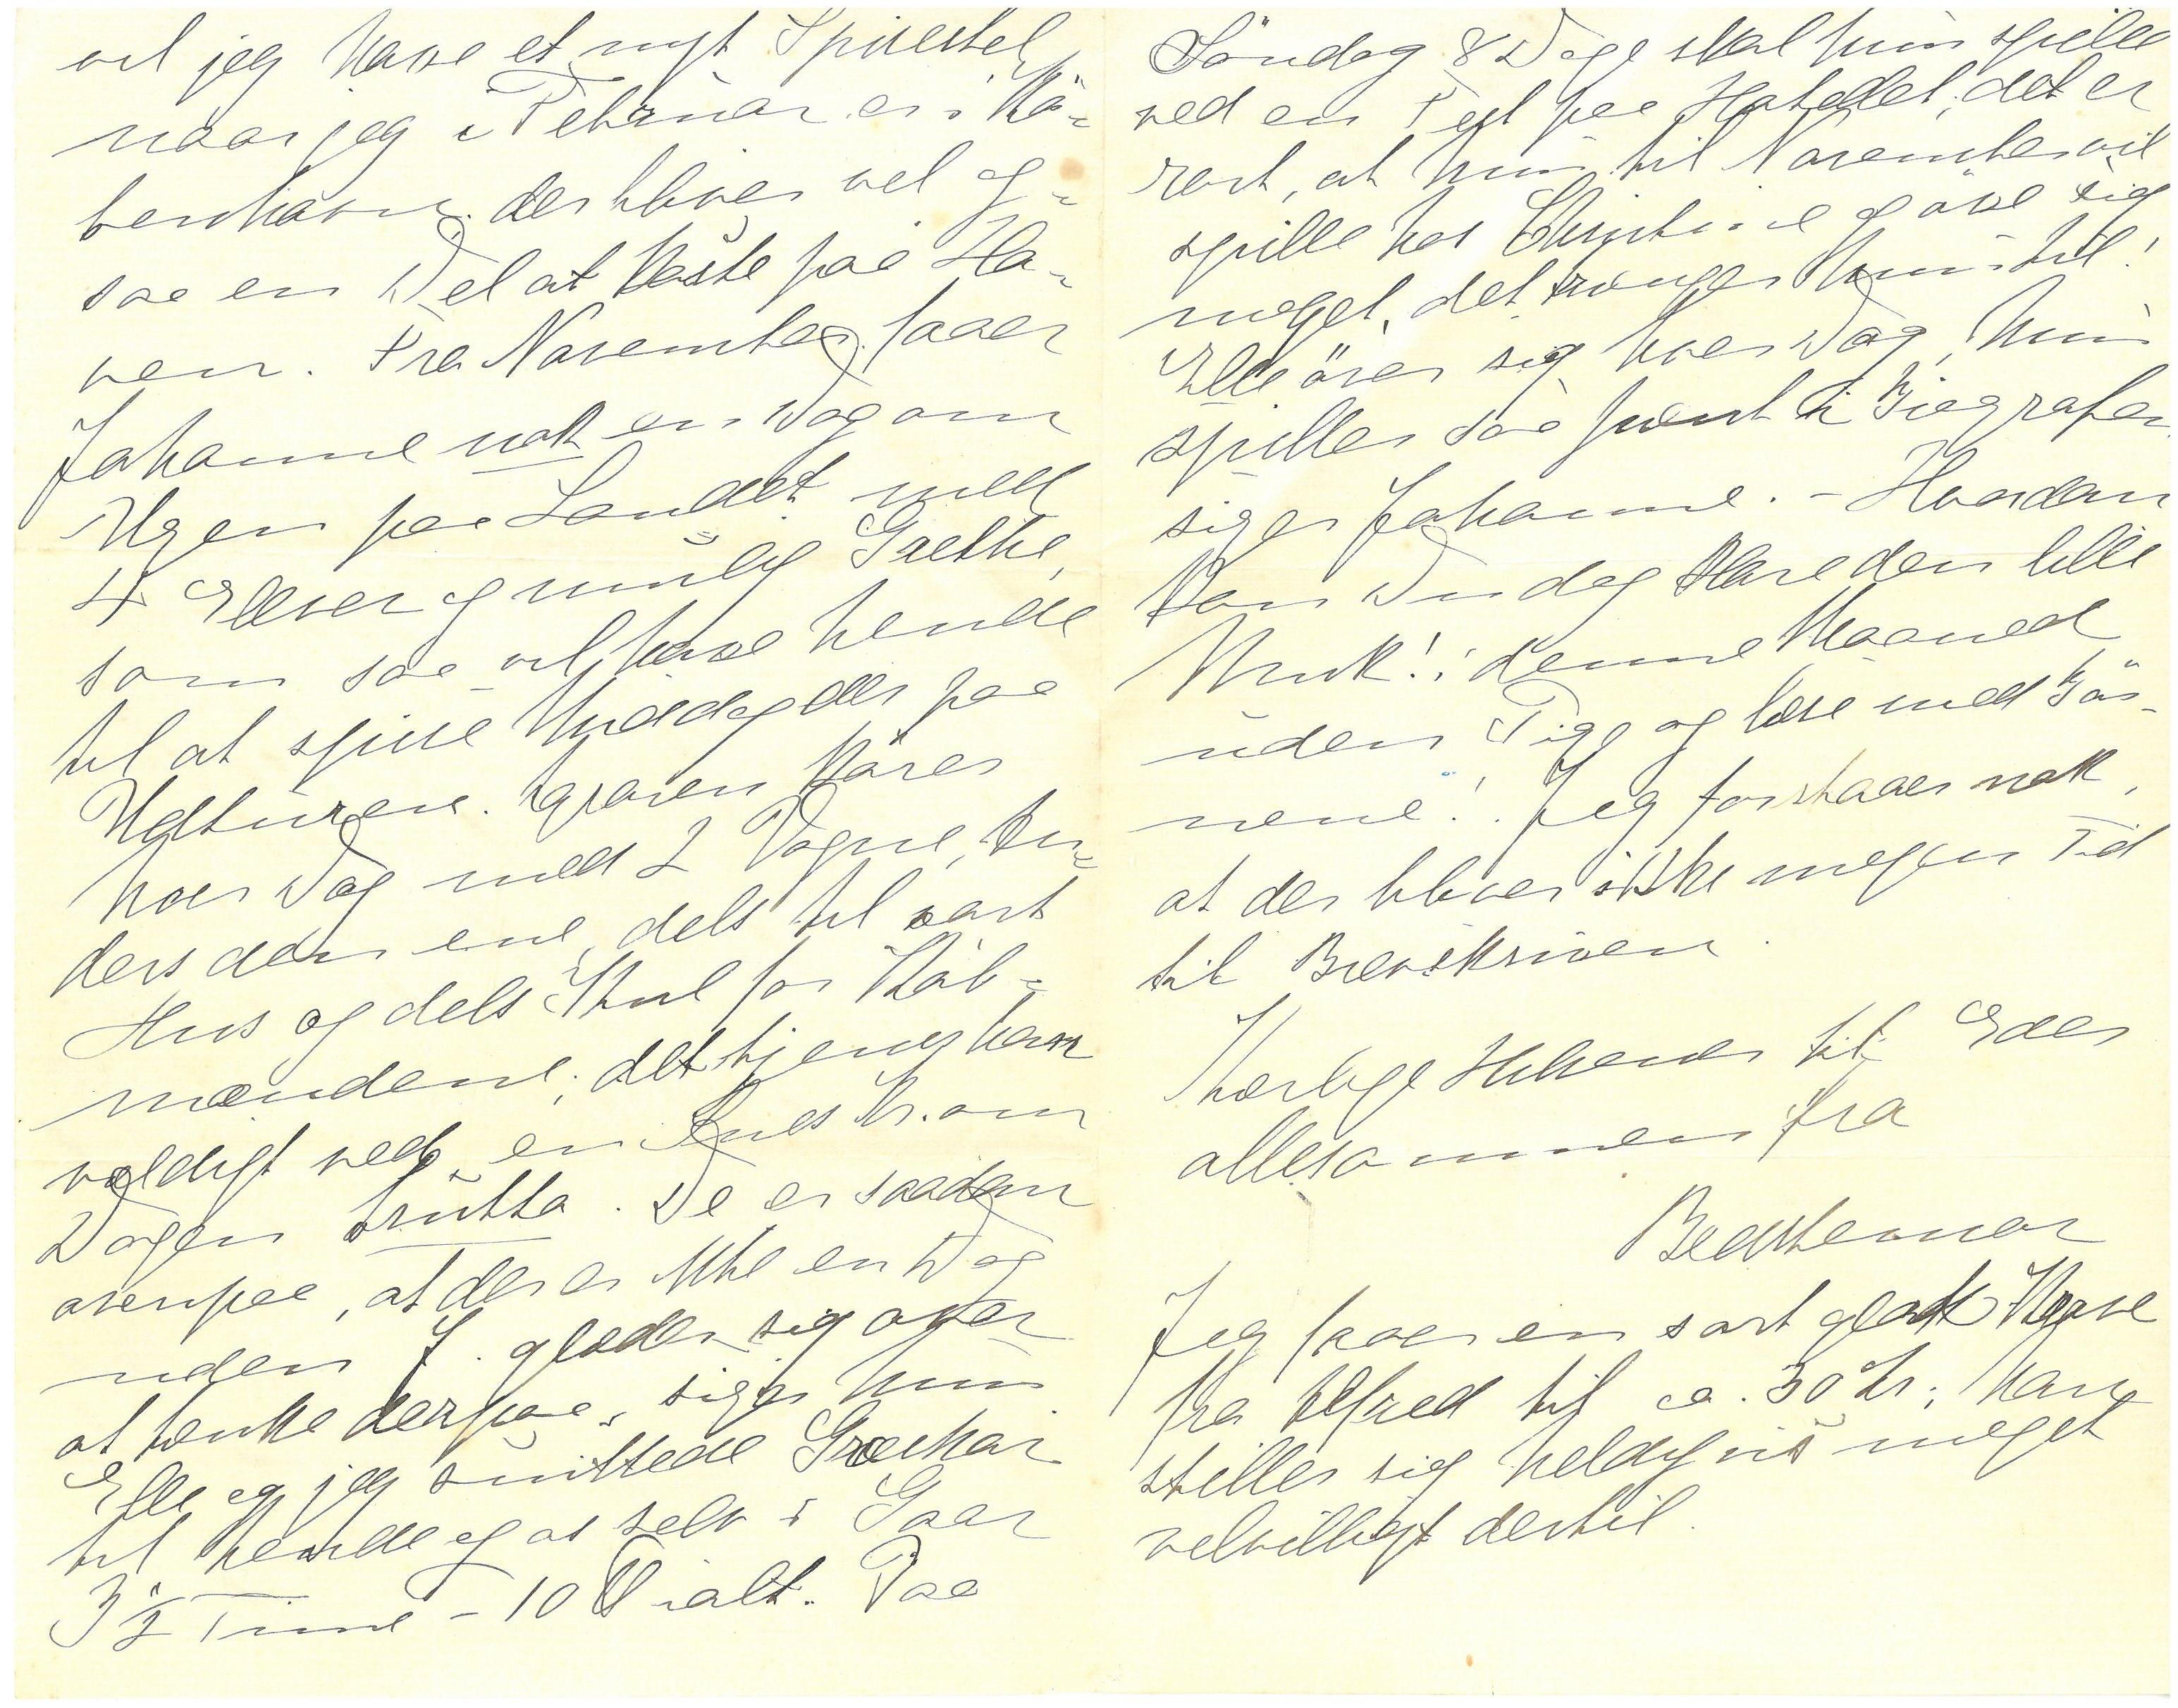 vil jeg have et nyt Spisestel,
naar jeg i Februar er i Kö=
benhavn. der bliver vel og=
saa en Del at koste paa Ha=
ven. Fra November faaer
Johanne nok en Dag om
Ugen paa Landet med
4 Elever og mulig Grethe,
som saa vil have hende
til at spise Middag der paa
Udturene. Agraren kører
hver Dag med 2 Vogne, An=
ders den ene, dels til vort
Hus og dels Kul for Köb=
mændene; det tjener han
vældigt ved, en Snes Kr. om
Dagen brutto. De er saadan
ovenpaa, at der er ikke en Dag
uden J. glæder sig over
at tænke derpaa, siger hun
Elle og jeg syltede Græskar
til hende og os selv i Gaar
3½ Time – 10 ℔ ialt. Paa
Söndag 8 Dage skal hun spille
ved en Fest paa Hotellet; det er
rart, at hun til November vil
spille hos Christine og øve sig
meget, det trænger hun til!
Elle över sig hver Dag, hun
spiller saa pænt i Biografen,
siger Johanne. – Hvordan
kan Du dog klare den lille
Muk! i denne Maaned
uden Pige og læse med Bör-
nene! Jeg forstaaer nok,
at der bliver ikke megen Tid
til Brevskriven.
Kærlige Hilsener til Eder
allesammen fra
Bedstemor
Jeg faaer en sort glat Kaabe
fra Alfred til ca. 30 Kr.; han
stiller sig heldigvis meget
velvilligt dertil.